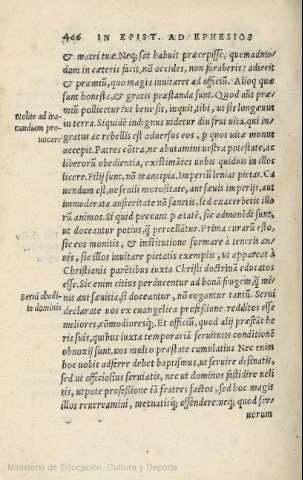 466 IN EPIST. AD EPHESIOS
& matri tuæ. Neq; sat habuit præcepisse, quemadmodum
in cæteris facit, nō occides, non furaberis: adiecit
& præmiũ, quo magis inuitaret ad officiũ. Alioq quæ
sunt honesta, & gratis præstanda sunt. Quod aũt præmiũ
pollicetur? ut bene sit, inquit, tibi, ut sis longæuus
Nolite ad iracundiam
prouocare
in terra. Siquidē indignus uidetur diu frui uita, qui ingratus
ac rebellis est aduersus eos, p quos uitæ munus
accepit. Patres cōtra, ne abutamini uestra potestate, ac
liberorũ obedientia, existimātes uobis quiduis in illos
licere. Filij sunt, nō mancipia. Imperiũ leniat pietas. Cauendum
est, ne senili morositate, aut sæuis imperijs, aut
immoderata austeritate nō sanetis, sed exacerbetis illorũ
animos. Si quid peccant p ætatē, sic admonēdi sunt,
ut doceantur potius, q̃ percellātur. Prima cura rũ esto,
sic eos monitis, & institutione formare à teneris annis,
sic illos inuitare pietatis exemplis, ut appareat à
Christianis parētibus iuxta Christi doctrinã educatos
esse. Sic enim citius perducentur ad bonã frugem, q̃ minis
aut sæuitia, si doceantur, nō cogantur tantũ. Serui
Serui obedite
dominis
declarate uos ex euangelica professione redditos esse
meliores, cōmodioresq;. Et officiũ, quod alij præstāt heris
suis, quibus iuxta temporariã seruitutis conditionē
obnoxij sunt, uos multo præstate cumulatius. Nec enim
hoc uobis adferre debet baptismus, ut seruire desinatis,
sed ut officiosius seruiatis, nec ut dominos fastidire uelitis,
utpote professione iã fratres factos, sed hoc magis
illos reuereamini, metuatisq; offendere: neq; quod seruorum
Ministerio de Educación, Cultura y Deporte